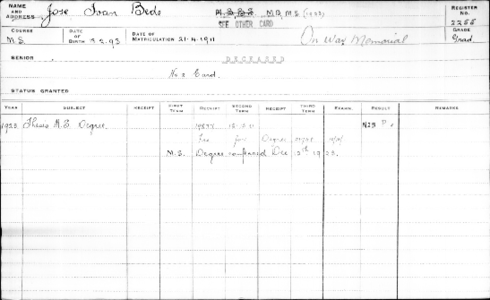 NAME AND ADDRESS Jose Ivan Bede M.B., B.S. M.D. M.S. (1923) REGISTER No. 2255
SEE OTHER CARD
COURSE M.S. DATE OF BIRTH DATE OF MATRICULATION 21.4.1911 On War Memorial GRADE Grad.
SENIOR
No 2 Card.
STATUS GRANTED
YEAR SUBJECT RECEIPT FIRST TERM RECEIPT SECOND TERM RECEIPT THIRD TERM EXAMN. RESULT REMARKS
1923 Thesis M.S. Degree.
Fee for Degree
M.S. Degree conferred Dec 1923.